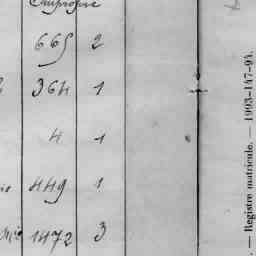 665 2
364 1
4 1
449 1
1472 3
— Registre matricule. — 1993-147-94.